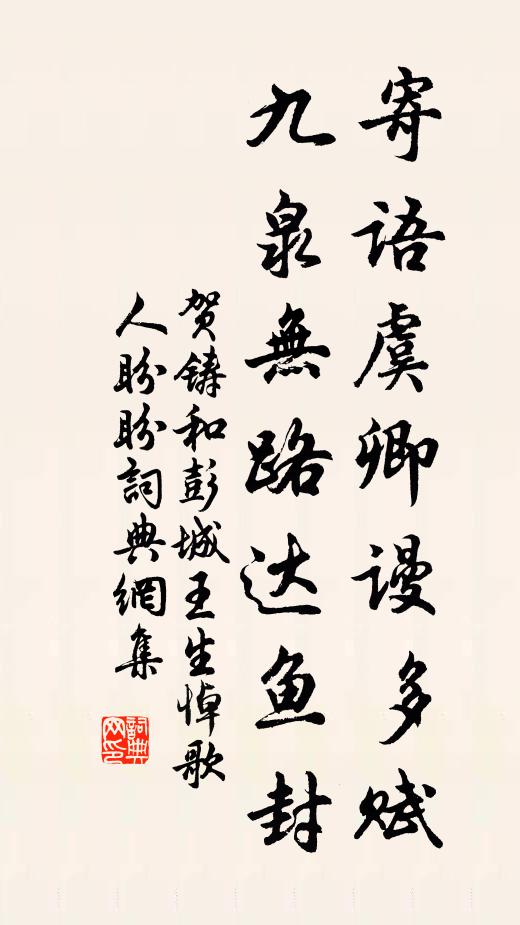 寄语虞卿谩多赋
九泉無路达鱼封
贺铸和彭城王生悼歌
人盼盼詞典網集
詞典
网印